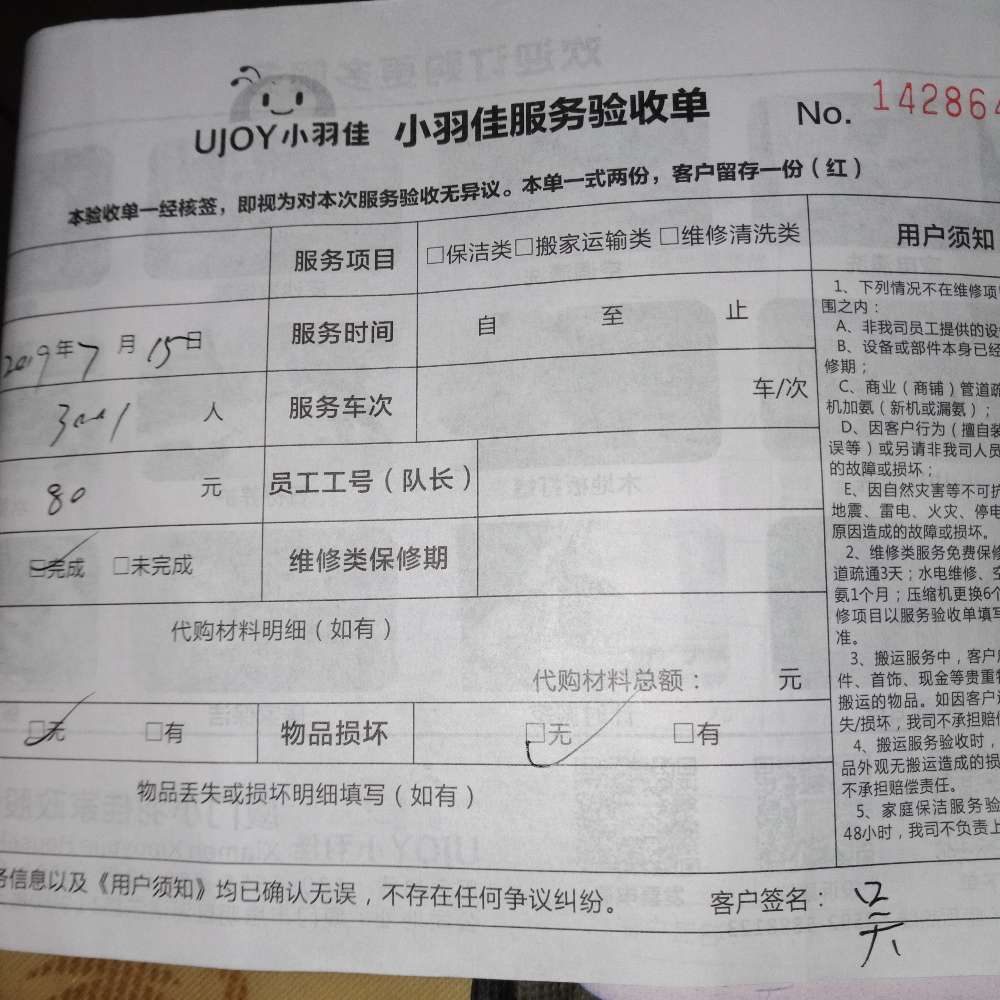 UJOY小羽佳 小羽佳服务验收单 No. 14286
本验收单一经核签，即视为对本次服务验收无异议。本单一式两份，客户留存一份（红）
服务项目 □保洁类□搬家运输类 □维修清洗类
2019年7月15日 服务时间 自 至 止
人 服务车次 车/次
80 元 员工工号（队长）
□完成 □未完成 维修类保修期
代购材料明细（如有）
代购材料总额： 元
□无 □有 物品损坏 □无 □有
物品丢失或损坏明细填写（如有）
务信息以及《用户须知》均已确认无误，不存在任何争议纠纷。 客户签名：吴
用户须知
1、下列情况不在维修项
围之内：
A、非我司员工提供的设
B、设备或部件本身已经
修期；
C、商业（商铺）管道疏
机加氨（新机或漏氨）；
D、因客户行为（擅自装
误等）或另请非我司人员
的故障或损坏；
E、因自然灾害等不可抗
地震、雷电、火灾、停电
原因造成的故障或损坏。
2、维修类服务免费保修
道疏通3天；水电维修、空
氨1个月；压缩机更换6个
修项目以服务验收单填写
准。
3、搬运服务中，客户应
件、首饰、现金等贵重物
搬运的物品。如因客户
失/损坏，我司不承担赔偿
4、搬运服务验收时，
品外观无搬运造成的损
不承担赔偿责任。
5、家庭保洁服务验
48小时，我司不负责上